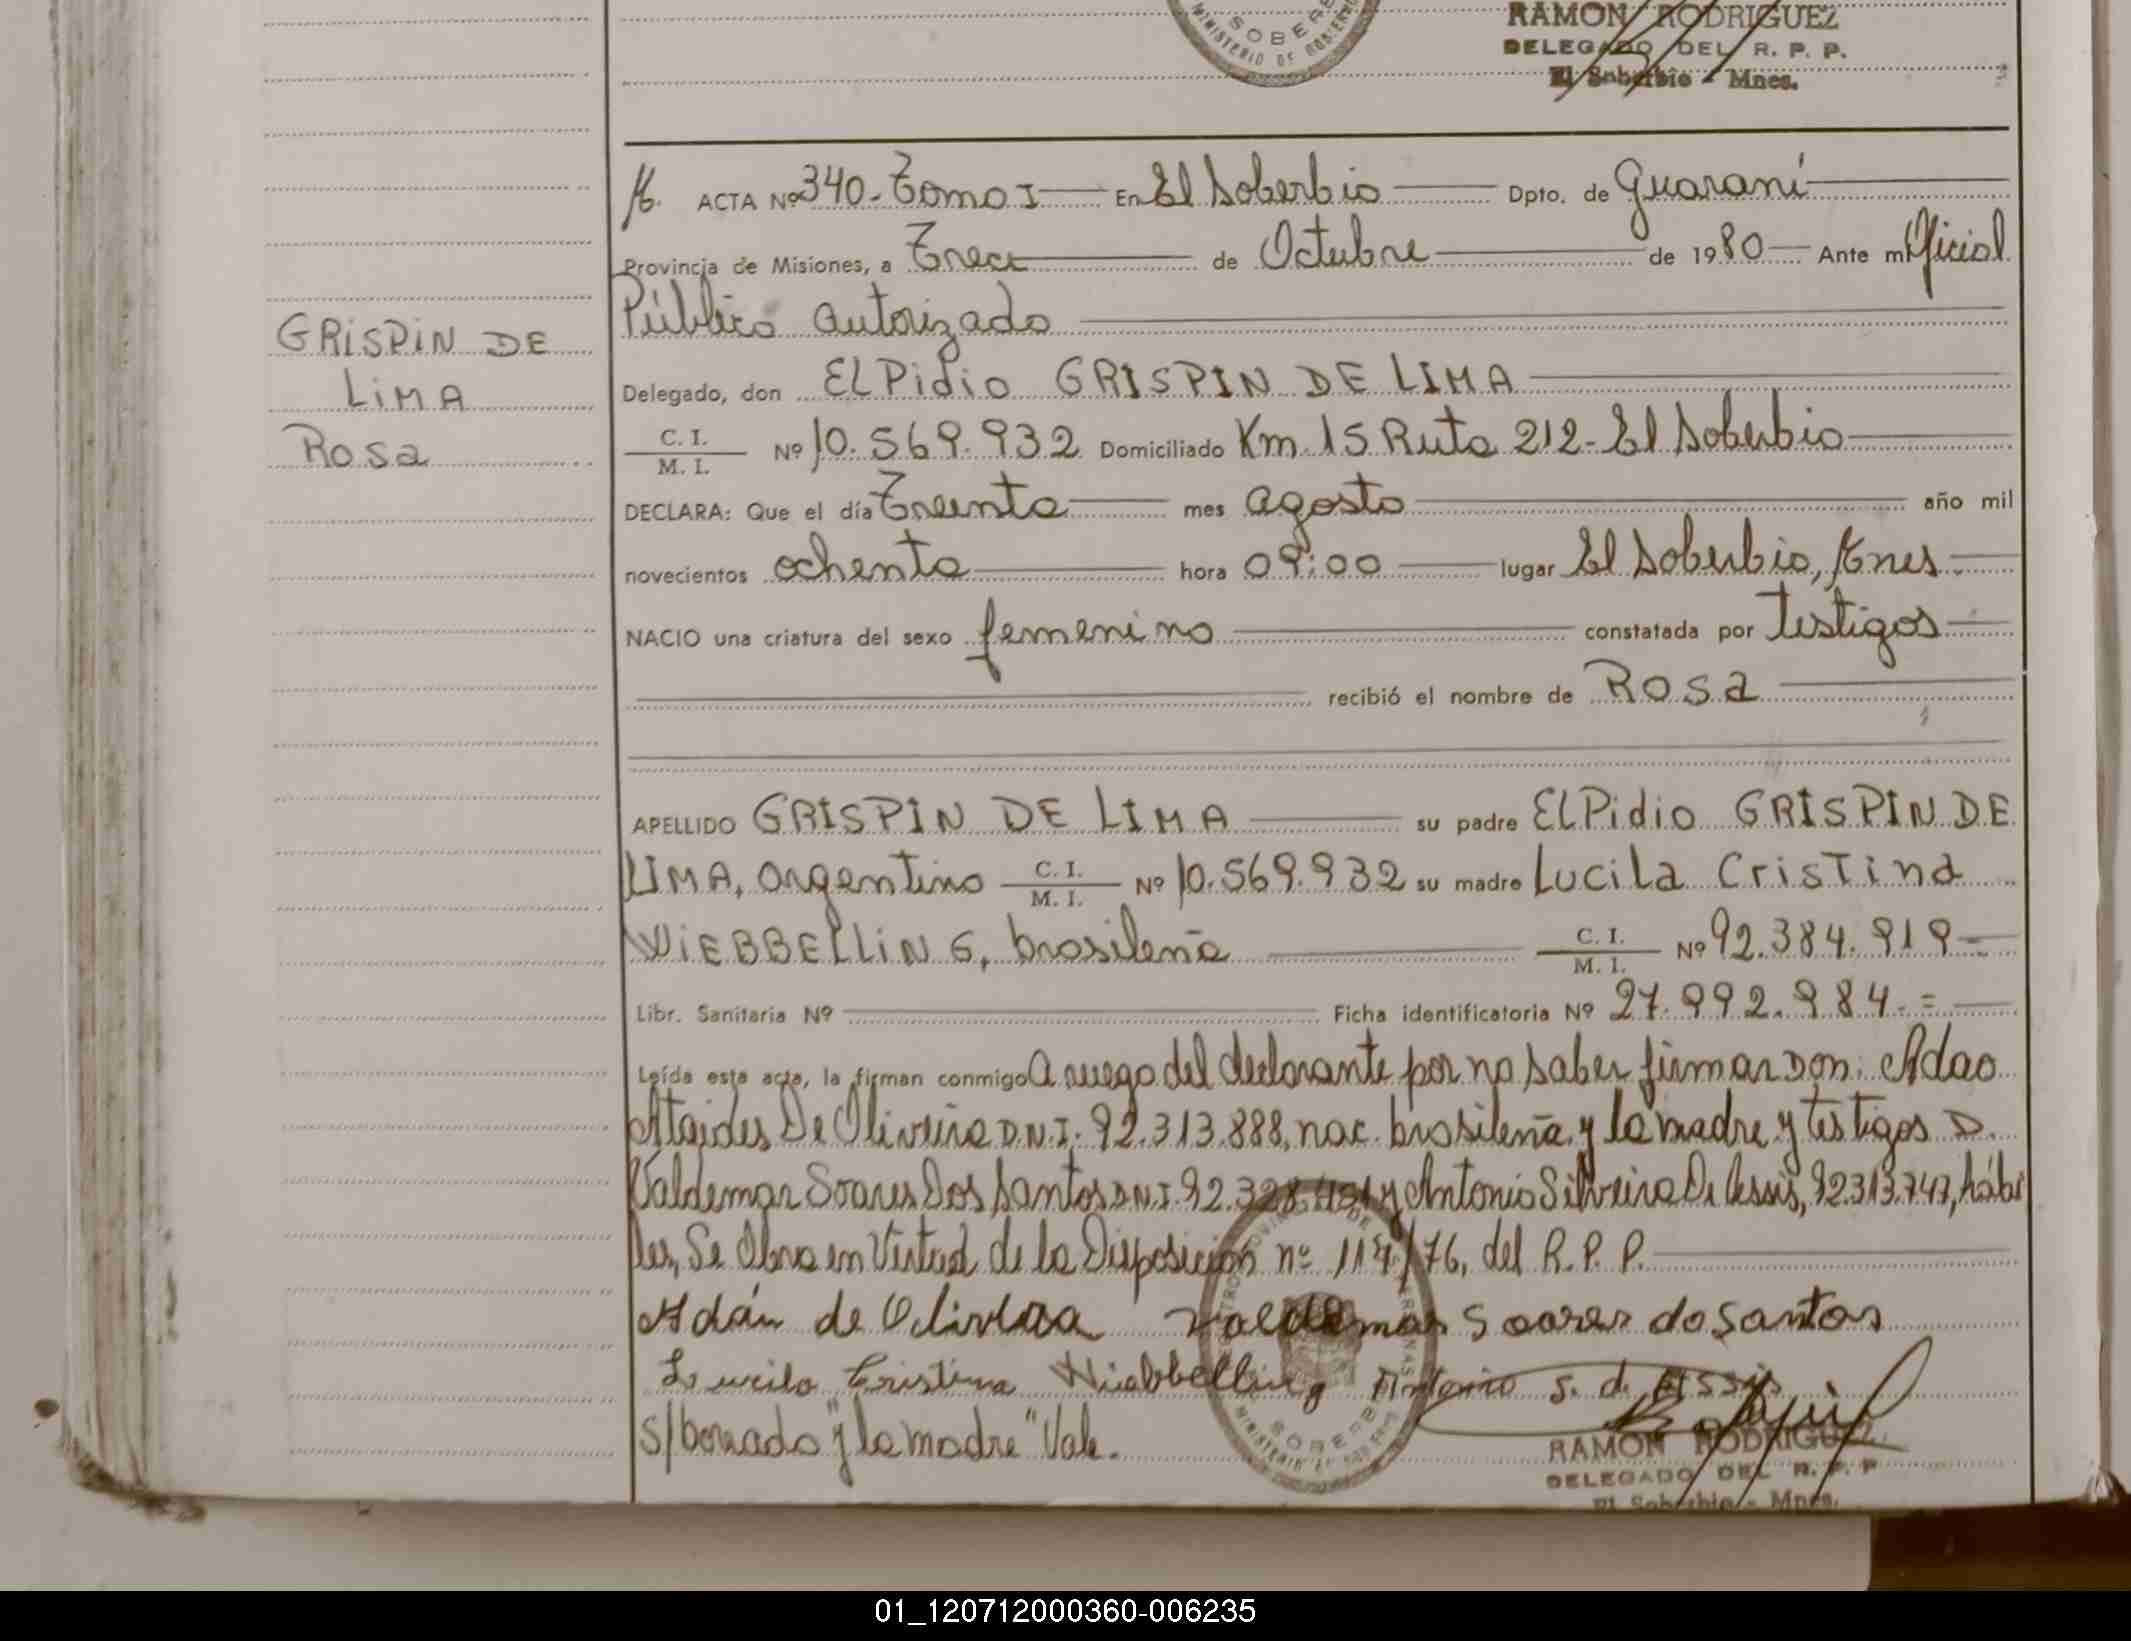 SOBER
MINISTERIO DE GOBIERNO
RAMON RODRIGUEZ
DELEGADO DEL R. P. P.
El Soberbio - Mnes.
ACTA Nº 340 - Tomo I En El Soberbio Dpto. de Guaraní
Provincia de Misiones, a Trece de Octubre de 1980 Ante mí Oficial
Público autorizado
GRISPIN DE
LIMA
Rosa
Delegado, don ELPidio GRISPIN DE LIMA
C. I.
M. I. Nº 10.569.932 Domiciliado Km 15 Ruta 212 - El Soberbio
DECLARA: Que el día Treinta mes agosto año mil
novecientos ochenta hora 09:00 lugar El Soberbio, Mnes.
NACIO una criatura del sexo femenino constatada por testigos
recibió el nombre de Rosa
APELLIDO GRISPIN DE LIMA su padre ELPidio GRISPIN DE
LIMA, argentino C. I. M. I. Nº 10.569.932 su madre Lucila Cristina
WIEBBELLING, brasileña C. I. M. I. Nº 92.384.919
Libr. Sanitaria Nº Ficha identificatoria Nº 27.992.984.=
Leída esta acta, la firman conmigo A ruego del declarante por no saber firmar Don: Adao
Ataides De Oliveira D.N.I. 92.313.888, nac. brasileña y la madre y testigos D.
Valdemar Soares Dos Santos D.N.I. 92.328. y Antonio Silveira De Assis, 92.313.747, hábi
les, Se Obra en Virtud de la Disposición nº 114/76, del R.P.P.
Adán de Oliveira Valdemar Soares do Santos
Lucila Cristina Wiebbelling Antonio S. d. Assis
S/borrado "y la madre" Vale.
SOBERBIO
RAMON RODRIGUEZ
DELEGADO DEL R. P. P
El Soberbio - Mnes.
01_120712000360-006235